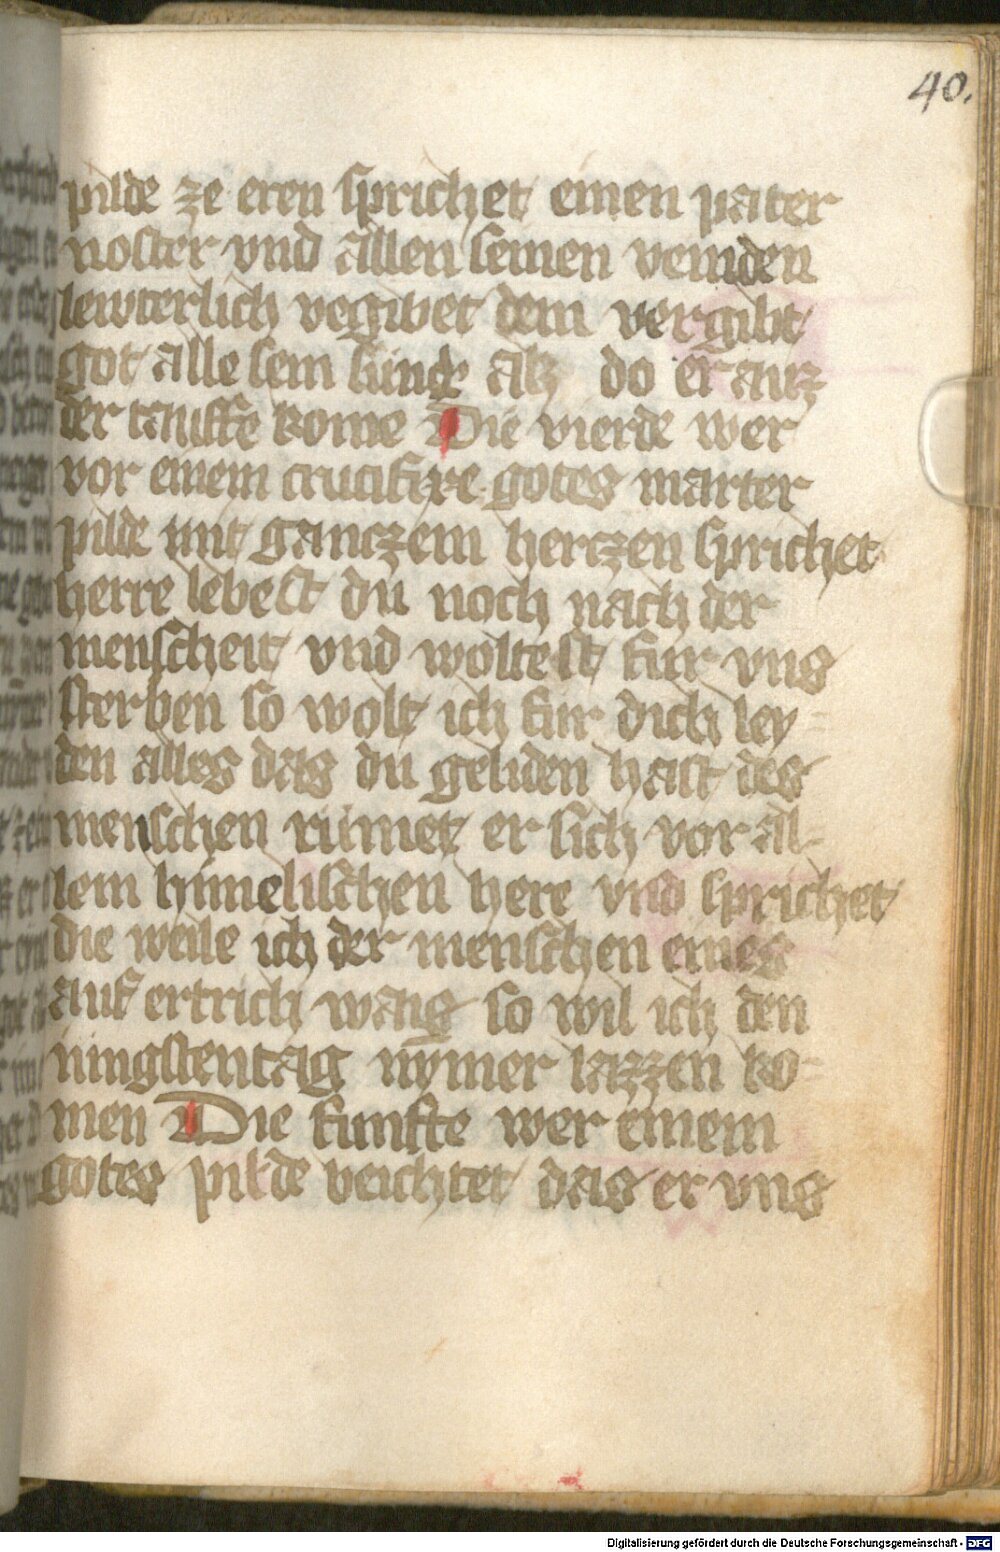 40.
pilde ze eren sprichet einen pater
noster vnd allen seinen veinden
lewterlich vegibet dem vergibt
got alle sein sund alz do er auz
der tauffe kome Die vierde wer
vor einem crucifixe gotes marter
pilde mit ganczem herczen sprichet
herre lebest du noch nach der
menscheit vnd woltest fur vns
sterben so wolt ich fur dich ley=
den alles das du geliden hast des
menschen rümet er sich vor al-
lem himelischen here vnd sprichet
die weile ich der menschen eines
auf ertrich wais so wil ich den
iungstentag nymer lazzen ko=
men Die funfte wer einem
gotes pilde beichtet das er vns
Digitalisierung gefördert durch die Deutsche Forschungsgemeinschaft - DFG